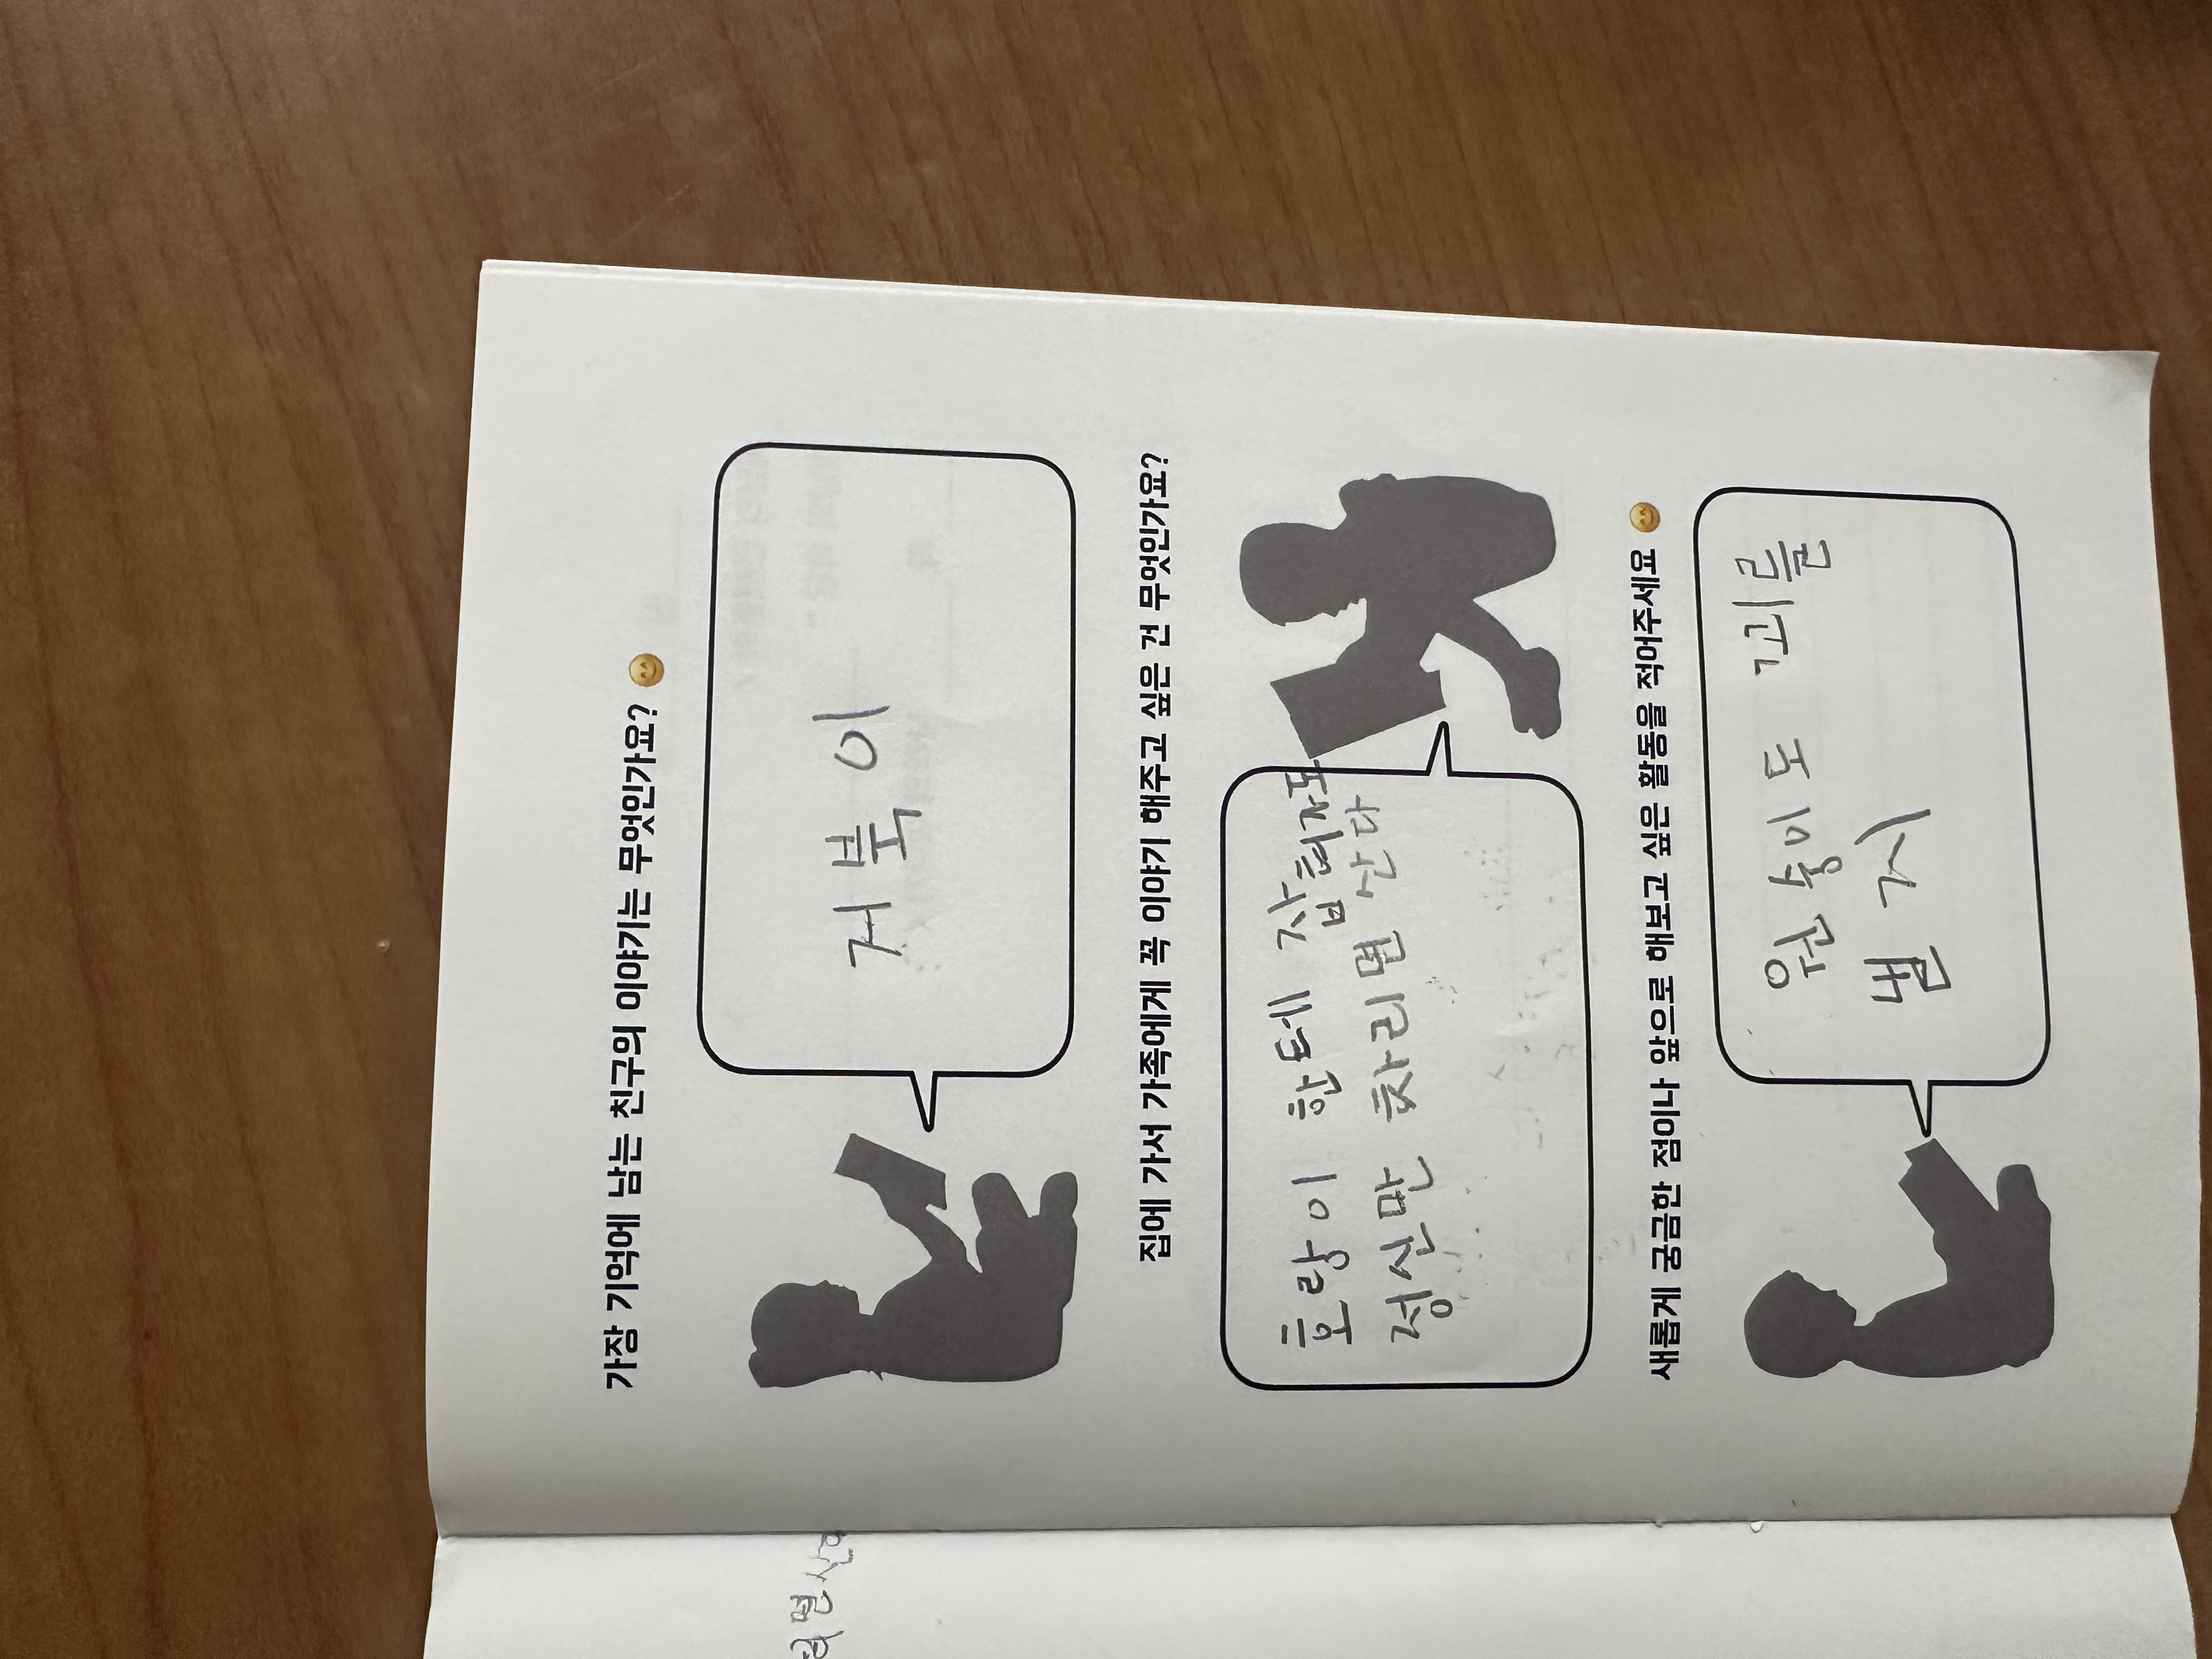 가장 기억에 남는 친구의 이야기는 무엇인가요?
거북이
집에 가서 가족에게 꼭 이야기 해주고 싶은 건 무엇인가요?
호랑이 한테 잡혀가도
정신만 차리면 산다
새롭게 궁금한 점이나 앞으로 해보고 싶은 활동을 적어주세요
원숭이도 꾀를
낼 지
면 산다